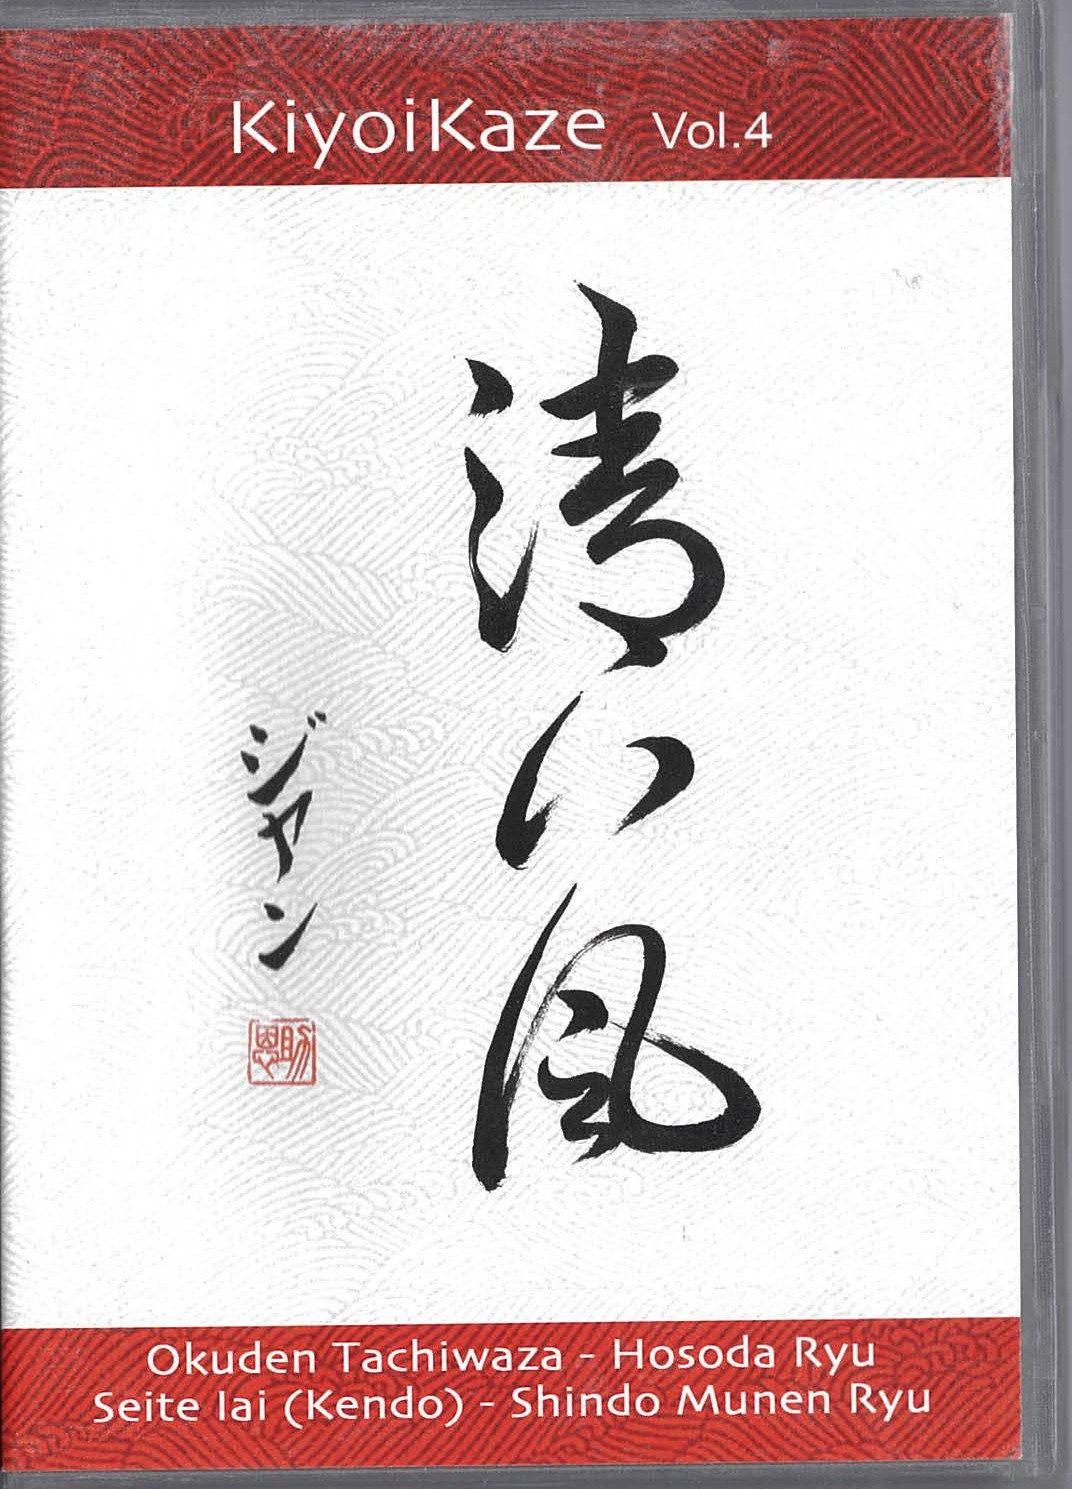 KiyoiKaze Vol.4
清い風
ジャン
Okuden Tachiwaza - Hosoda Ryu
Seite Iai (Kendo) - Shindo Munen Ryu